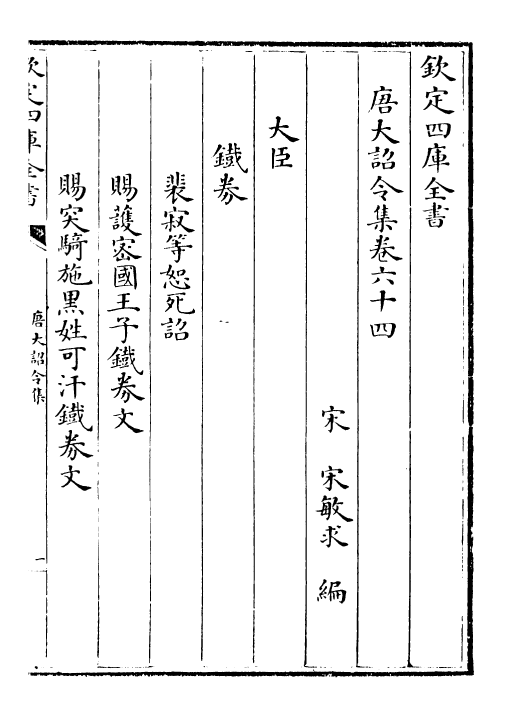 欽定四庫全書
唐大詔令集卷六十四
宋 宋敏求 編
大臣
鐵券
裴寂等恕死詔
賜護密國王子鐵券文
賜突騎施黑姓可汗鐵券文
欽定四庫全書
唐大詔令集
一